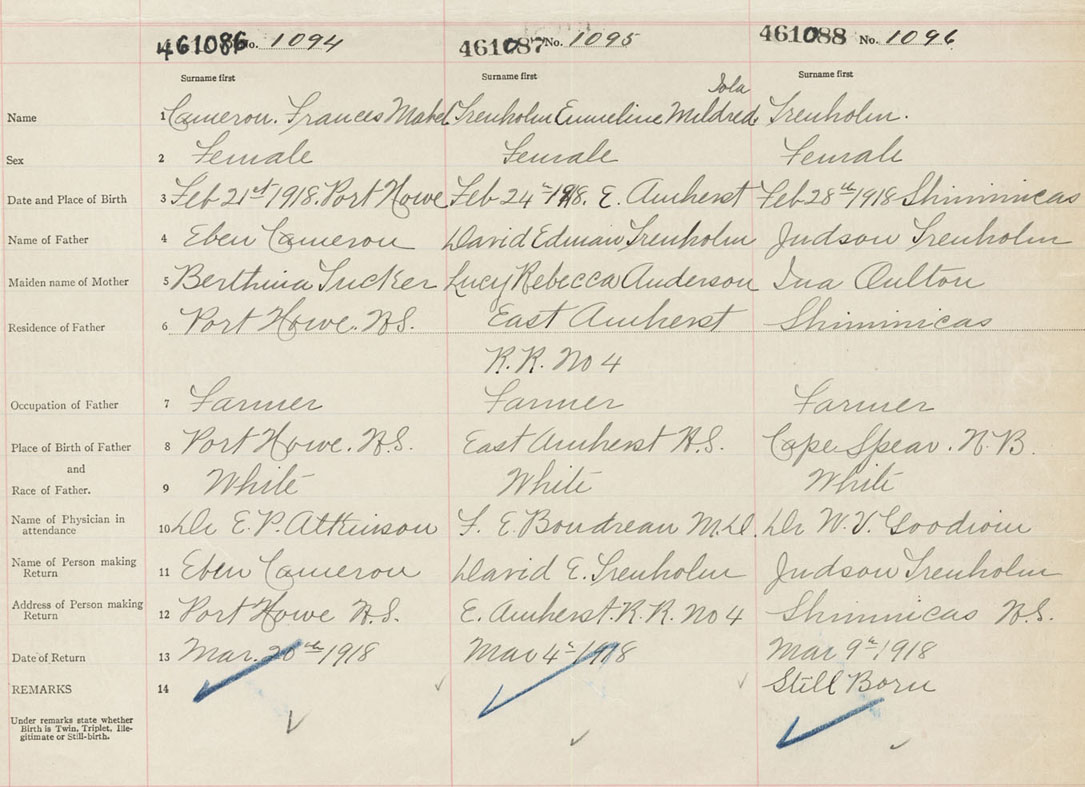 461086 No. 1094 461087 No. 1095 461088 No. 1096
Surname first Surname first Surname first
Iola
Name 1 Cameron. Frances Mabel Trenholm Emmeline Mildred Trenholm.
Sex 2 Female Female Female
Date and Place of Birth 3 Feb 21st 1918. Port Howe Feb 24th 1918. E. Amherst Feb 28th 1918 Shiminicas
Name of Father 4 Eben Cameron David Edman Trenholm Judson Trenholm
Maiden name of Mother 5 Berthina Tucker Lucy Rebecca Anderson Ina Oulton
Residence of Father 6 Port Howe. N.S. East Amherst Shiminicas
R.R. No 4
Occupation of Father 7 Farmer Farmer Farmer
Place of Birth of Father 8 Port Howe. N.S. East Amherst N.S. Cape Spear. N.B.
and
Race of Father. 9 White White White
Name of Physician in
attendance 10 Dr E. P. Atkinson F. E. Boudreau M.D. Dr W. V. Goodwin
Name of Person making
Return 11 Eben Cameron David E. Trenholm Judson Trenholm
Address of Person making
Return 12 Port Howe N.S. E. Amherst. R.R. No 4 Shiminicas N.S.
Date of Return 13 Mar. 20th 1918 Mar 4th 1918 Mar 9th 1918
REMARKS 14 Still Born
Under remarks state whether
Birth is Twin, Triplet, Ille-
gitimate or Still-birth.